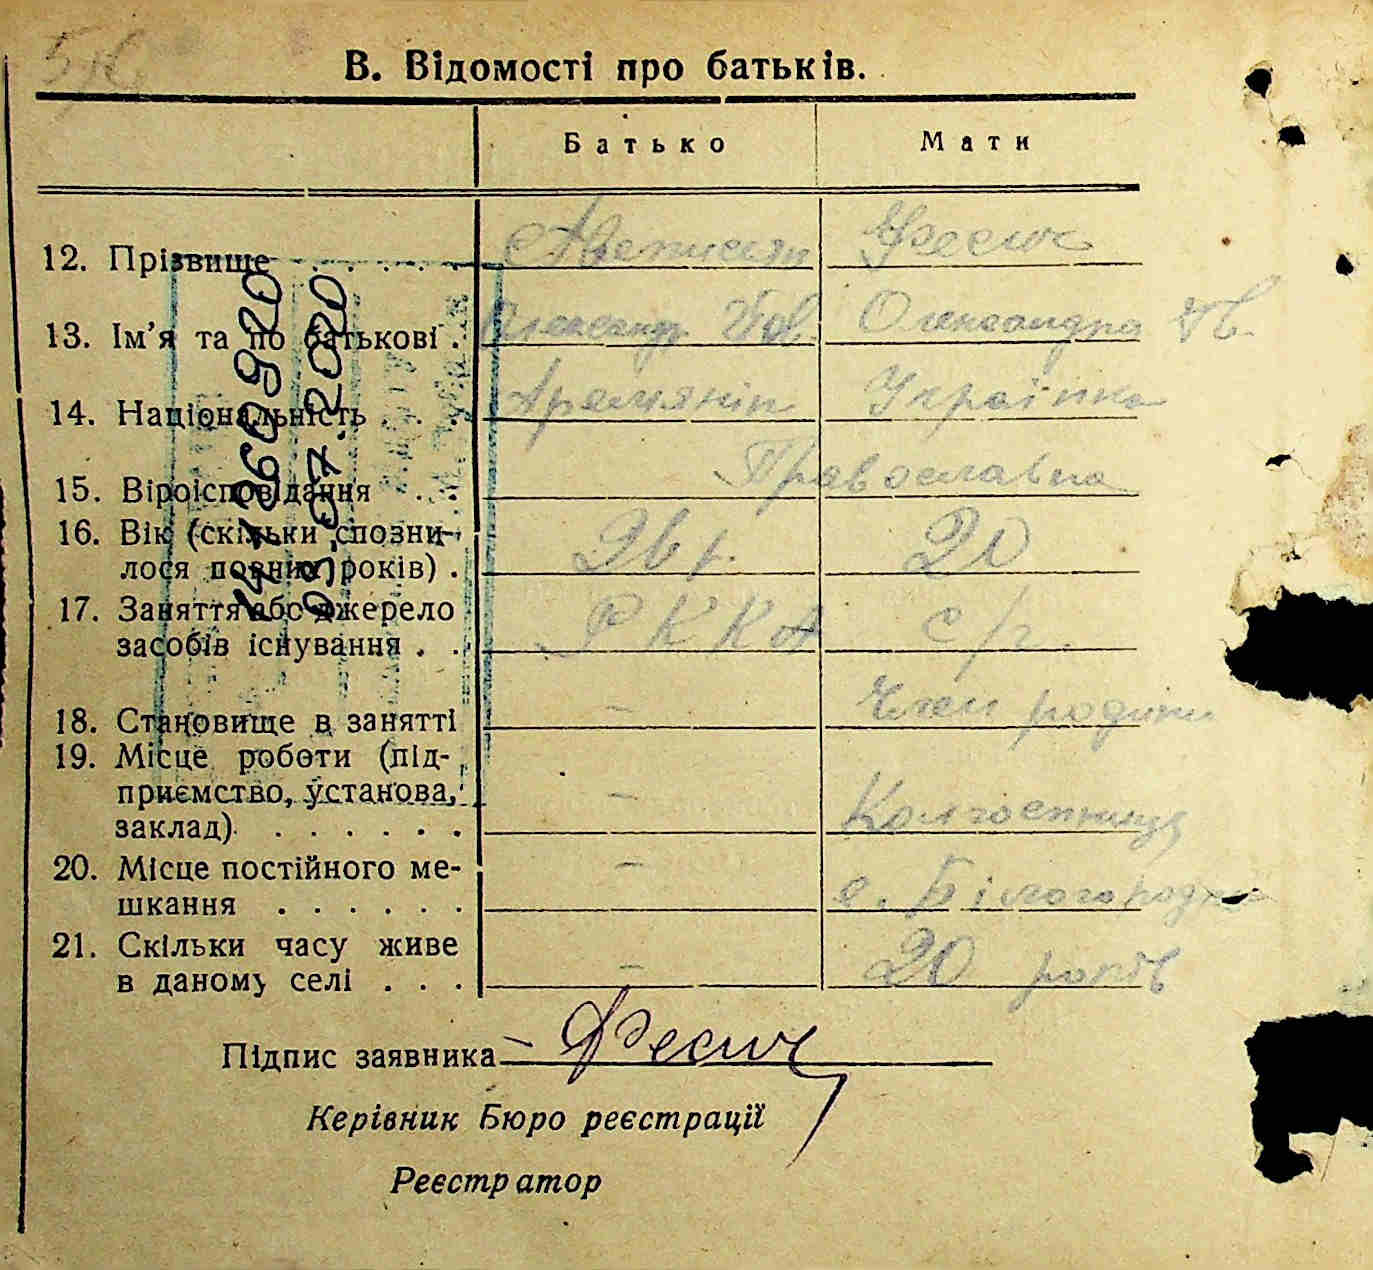 В. Відомості про батьків.
Батько Мати
12. Прізвище . . . . . Аветисян Фесюк
13. Ім'я та по батькові . Александр Олександра Ів.
14. Національність . . . Аремянін Українка
15. Віроісповідання . . . Православна
16. Вік (скільки сповни-
лося повних років) . 26 р. 20
17. Заняття або джерело
засобів існування . . Р К К А с/г.
18. Становище в занятті – Член родини
19. Місце роботи (під-
приємство, установа, –
заклад) . . . . . . Колгоспниця
20. Місце постійного ме- –
шкання . . . . . . с. Білогородка
21. Скільки часу живе
в даному селі . . . – 20 років
Підпис заявника – Фесюк
Керівник Бюро реєстрації
Реєстратор
03.07.2020